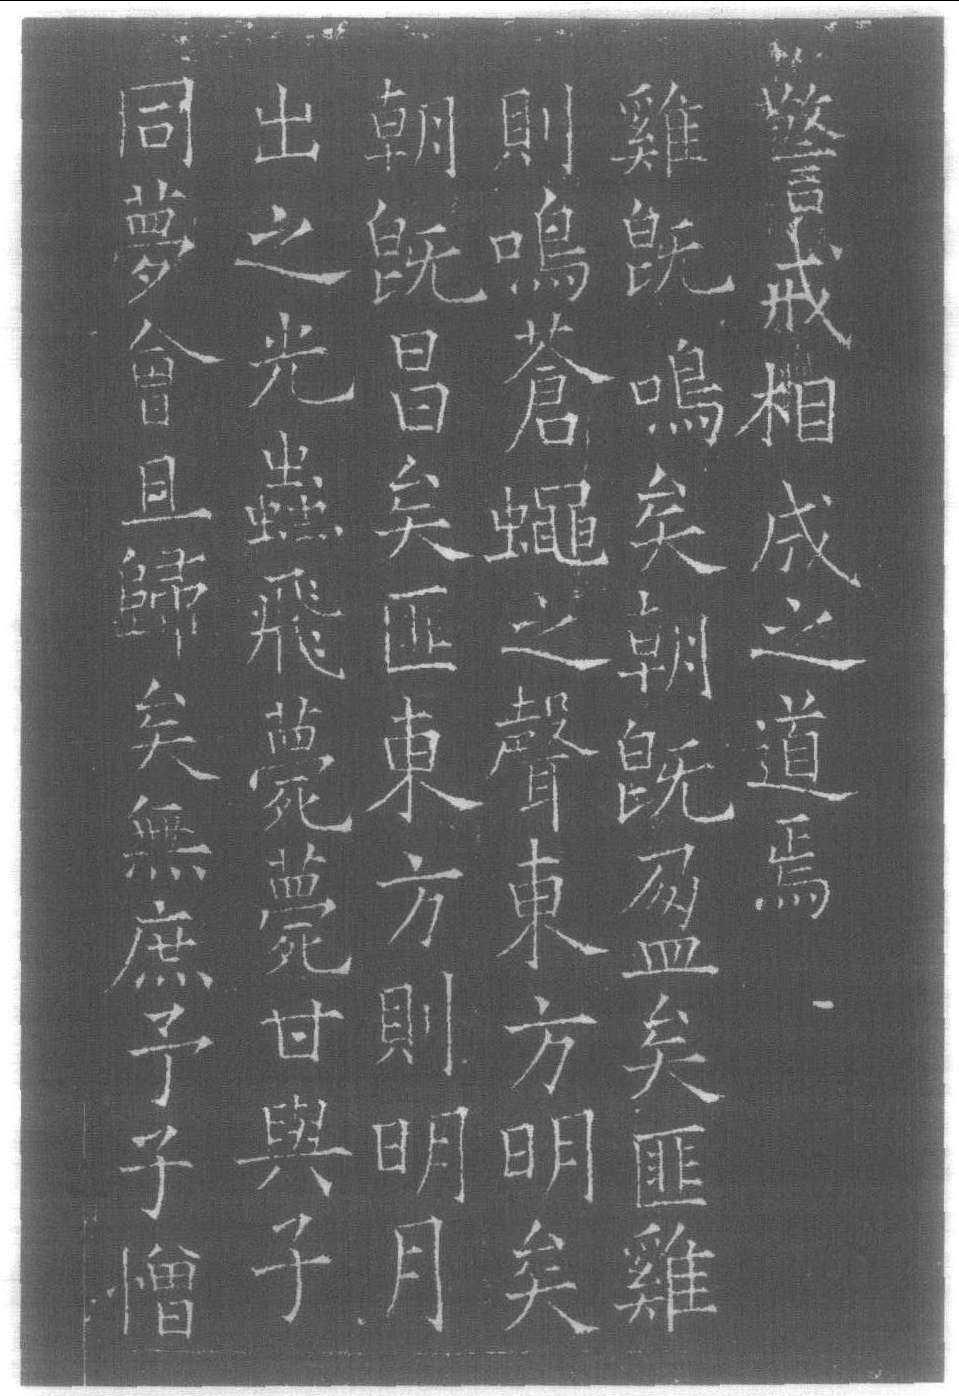 警戒相成之道焉
雞既鳴矣朝既盈矣匪雞
則鳴蒼蠅之聲東方明矣
朝既昌矣匪東方則明月
出之光蟲飛薨薨甘與子
同夢會且歸矣無庶予子憎